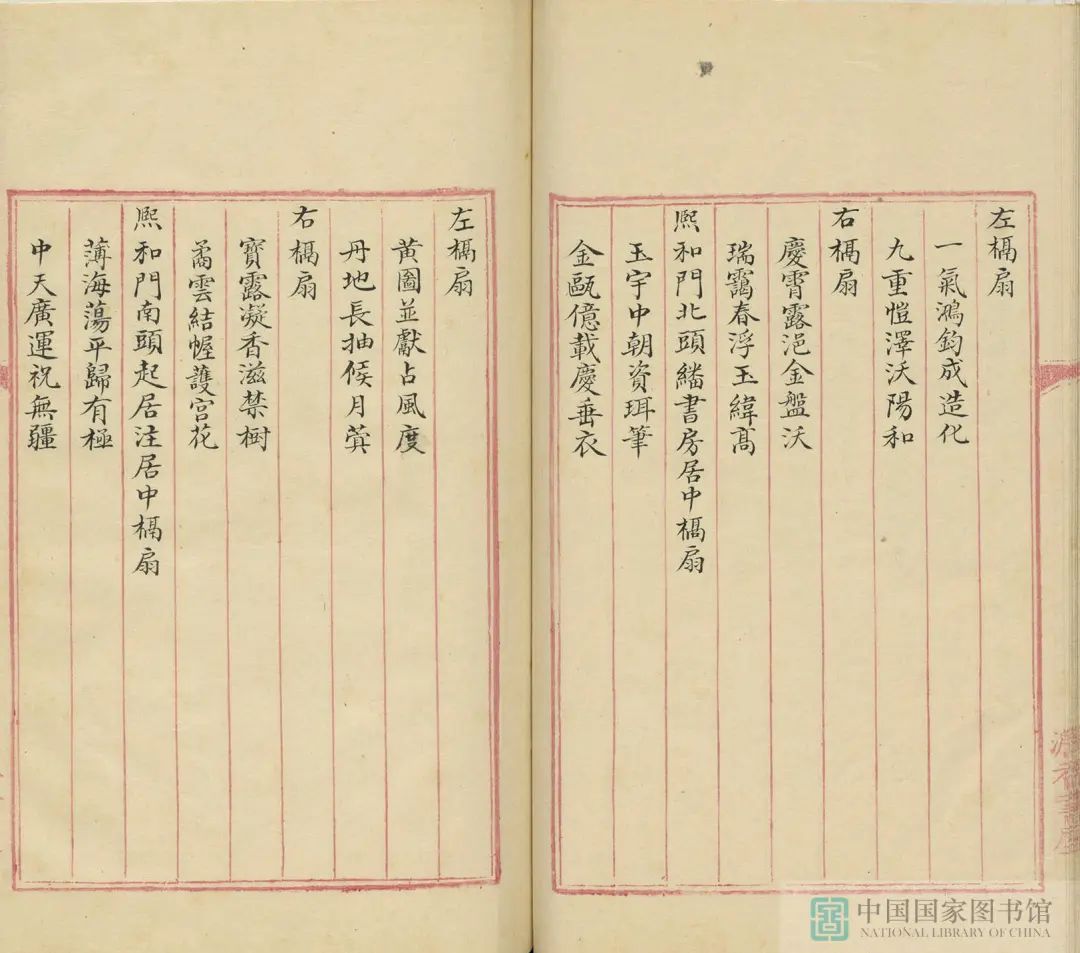 左槅扇
一氣鴻鈞成造化
九重愷澤沃陽和
右槅扇
慶霄露浥金盤沃
瑞靄春浮玉緯高
熈和門北頭繙書房居中槅扇
玉宇中朝資珥筆
金甌億載慶垂衣
左槅扇
黃圖並獻占風度
丹地長抽候月蓂
右槅扇
寳露凝香滋禁樹
矞雲結幄護宮花
熈和門南頭起居注居中槅扇
薄海蕩平歸有極
中天廣運祝無疆
中国国家图书馆
NATIONAL LIBRARY OF CHINA